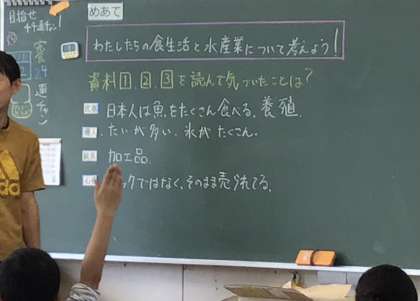 めあて
わたしたちの食生活と水産業について考えよう!
資料1、2、3を読んで気づいたことは?
日本人は魚をたくさん食べる。養殖
たいが多い、氷がたくさん。
加工品
ックではなく、そのまま売られてる。